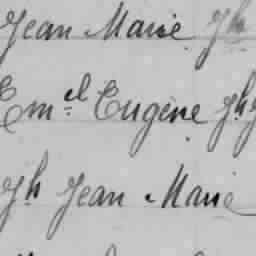 Jean Marie Jh
Em.el Eugène Jh J
Jh Jean Marie